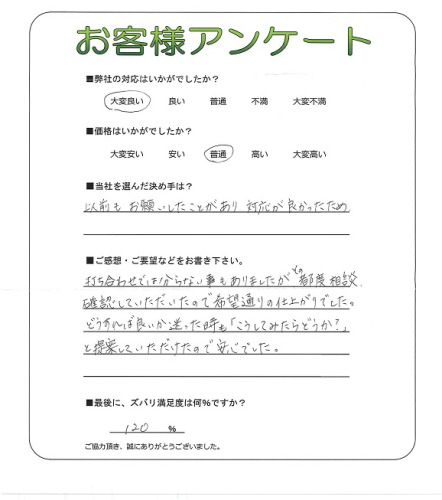 お客様アンケート
■弊社の対応はいかがでしたか?
大変良い 良い 普通 不満 大変不満
■価格はいかがでしたか?
大変安い 安い 普通 高い 大変高い
■当社を選んだ決め手は?
以前もお願いしたことがあり 対応が良かったため
■ご感想・ご要望などをお書き下さい。
打ち合わせでは分からない事もありましたが その都度相談、
確認していただいたので希望通りの仕上がりでした。
どうすれば良いか迷った時も「こうしてみたらどうか?」
と提案していただけたので安心でした。
■最後に、ズバリ満足度は何%ですか?
120 %
ご協力頂き、誠にありがとうございました。